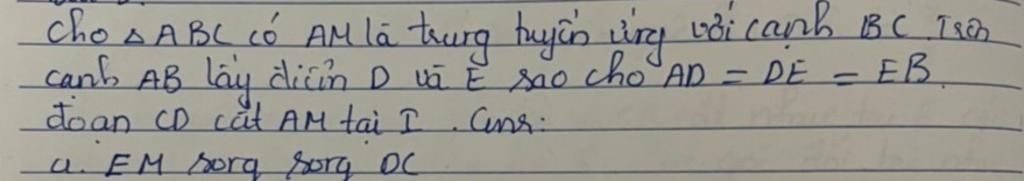 Cho △ ABC có AM là trung tuyến ứng với cạnh BC. Trên
cạnh AB lấy điểm D và E sao cho AD = DE = EB.
đoạn CD cắt AM tại I. Cmr:
a. EM song song DC